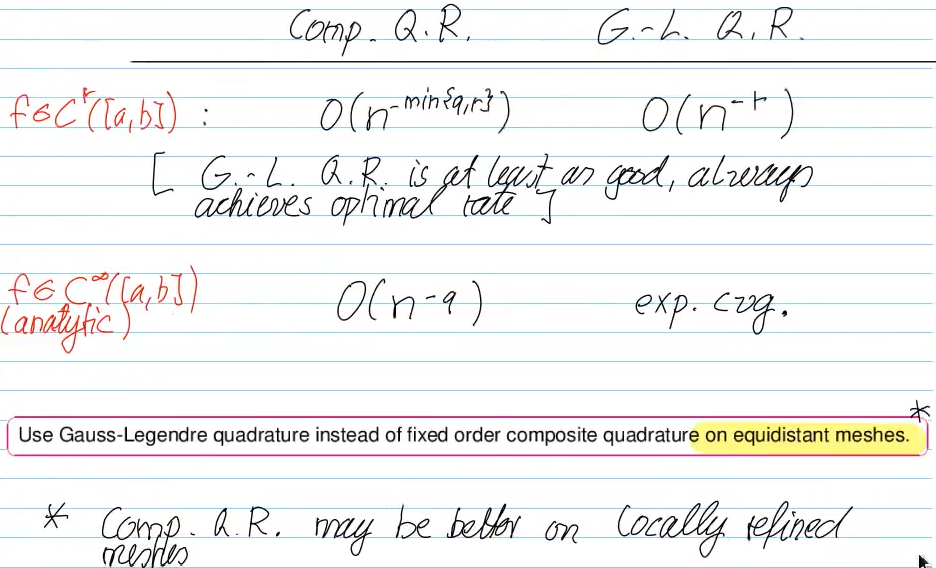 Comp. Q.R. G.-L. Q.R.
f∈C^r([a,b]) : O(n^-min{q,r}) O(n^-r)
[ G.-L. Q.R. is at least as good, always
achieves optimal rate ]
f∈C^∞([a,b]) O(n^-q) exp. cvg.
(analytic)
*
Use Gauss-Legendre quadrature instead of fixed order composite quadrature on equidistant meshes.
* Comp. Q.R. may be better on locally refined
meshes